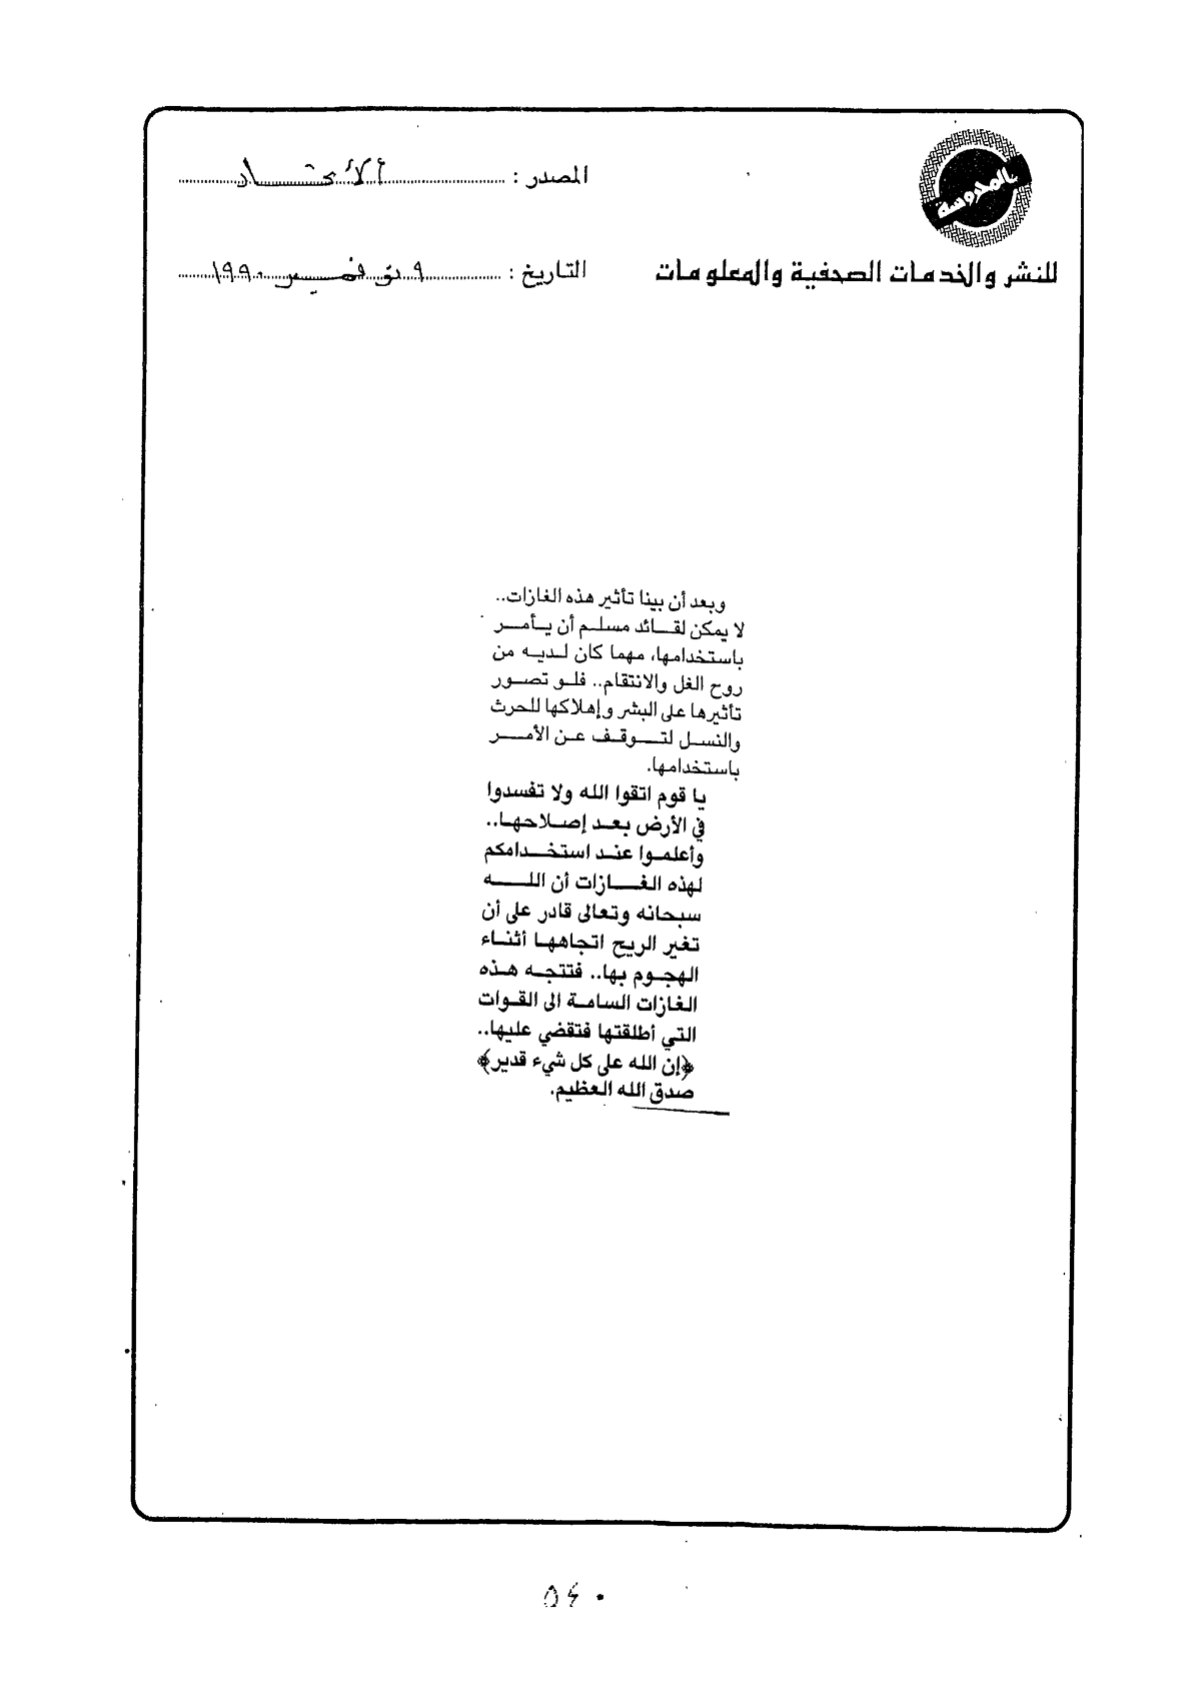 المحروسة
المصدر : الأتحاد
للنشر والخدمات الصحفية والمعلومات
التاريخ : ٩ نوفمبر ١٩٩٠
وبعد أن بينا تأثير هذه الغازات..
لا يمكن لقائد مسلم أن يأمر
باستخدامها، مهما كان لديه من
روح الغل والانتقام.. فلو تصور
تأثيرها على البشر وإهلاكها للحرث
والنسل لتوقف عن الأمر
باستخدامها.
يا قوم اتقوا الله ولا تفسدوا
في الأرض بعد إصلاحها..
وأعلموا عند استخدامكم
لهذه الغازات أن الله
سبحانه وتعالى قادر على أن
تغير الريح اتجاهها أثناء
الهجوم بها.. فتتجه هذه
الغازات السامة الى القوات
التي أطلقتها فتقضي عليها..
﴿إن الله على كل شيء قدير﴾
صدق الله العظيم.
٥٤٠